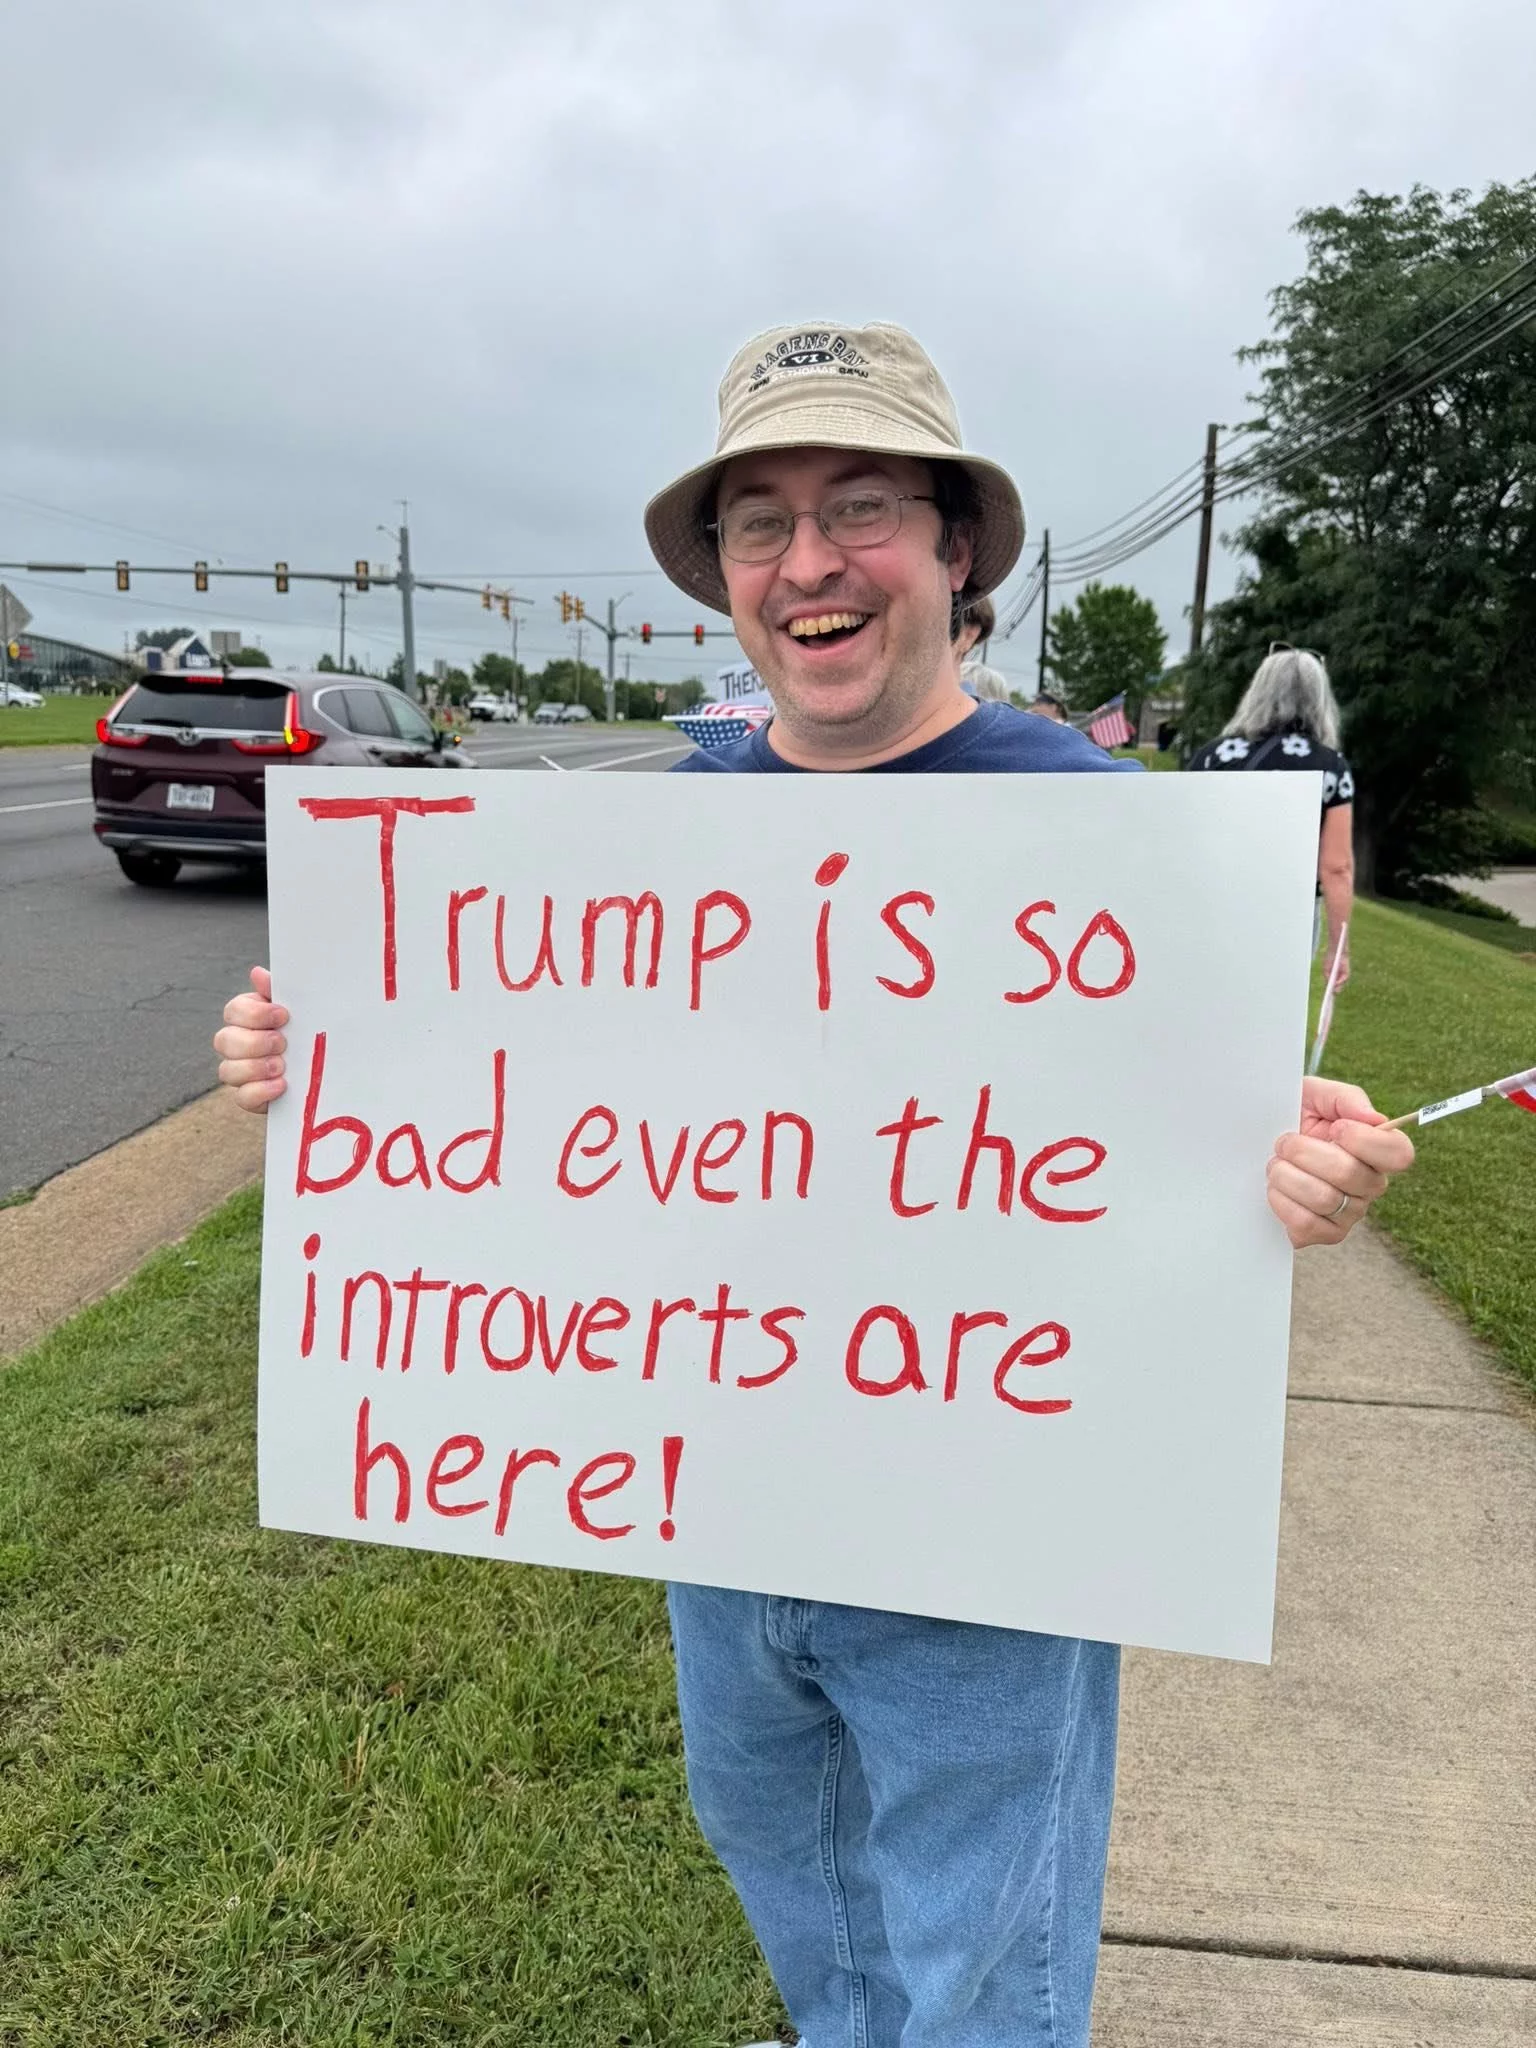 MAGENS BAY
VI
ST.THOMAS
THER
Trump is so
bad even the
introverts are
here!